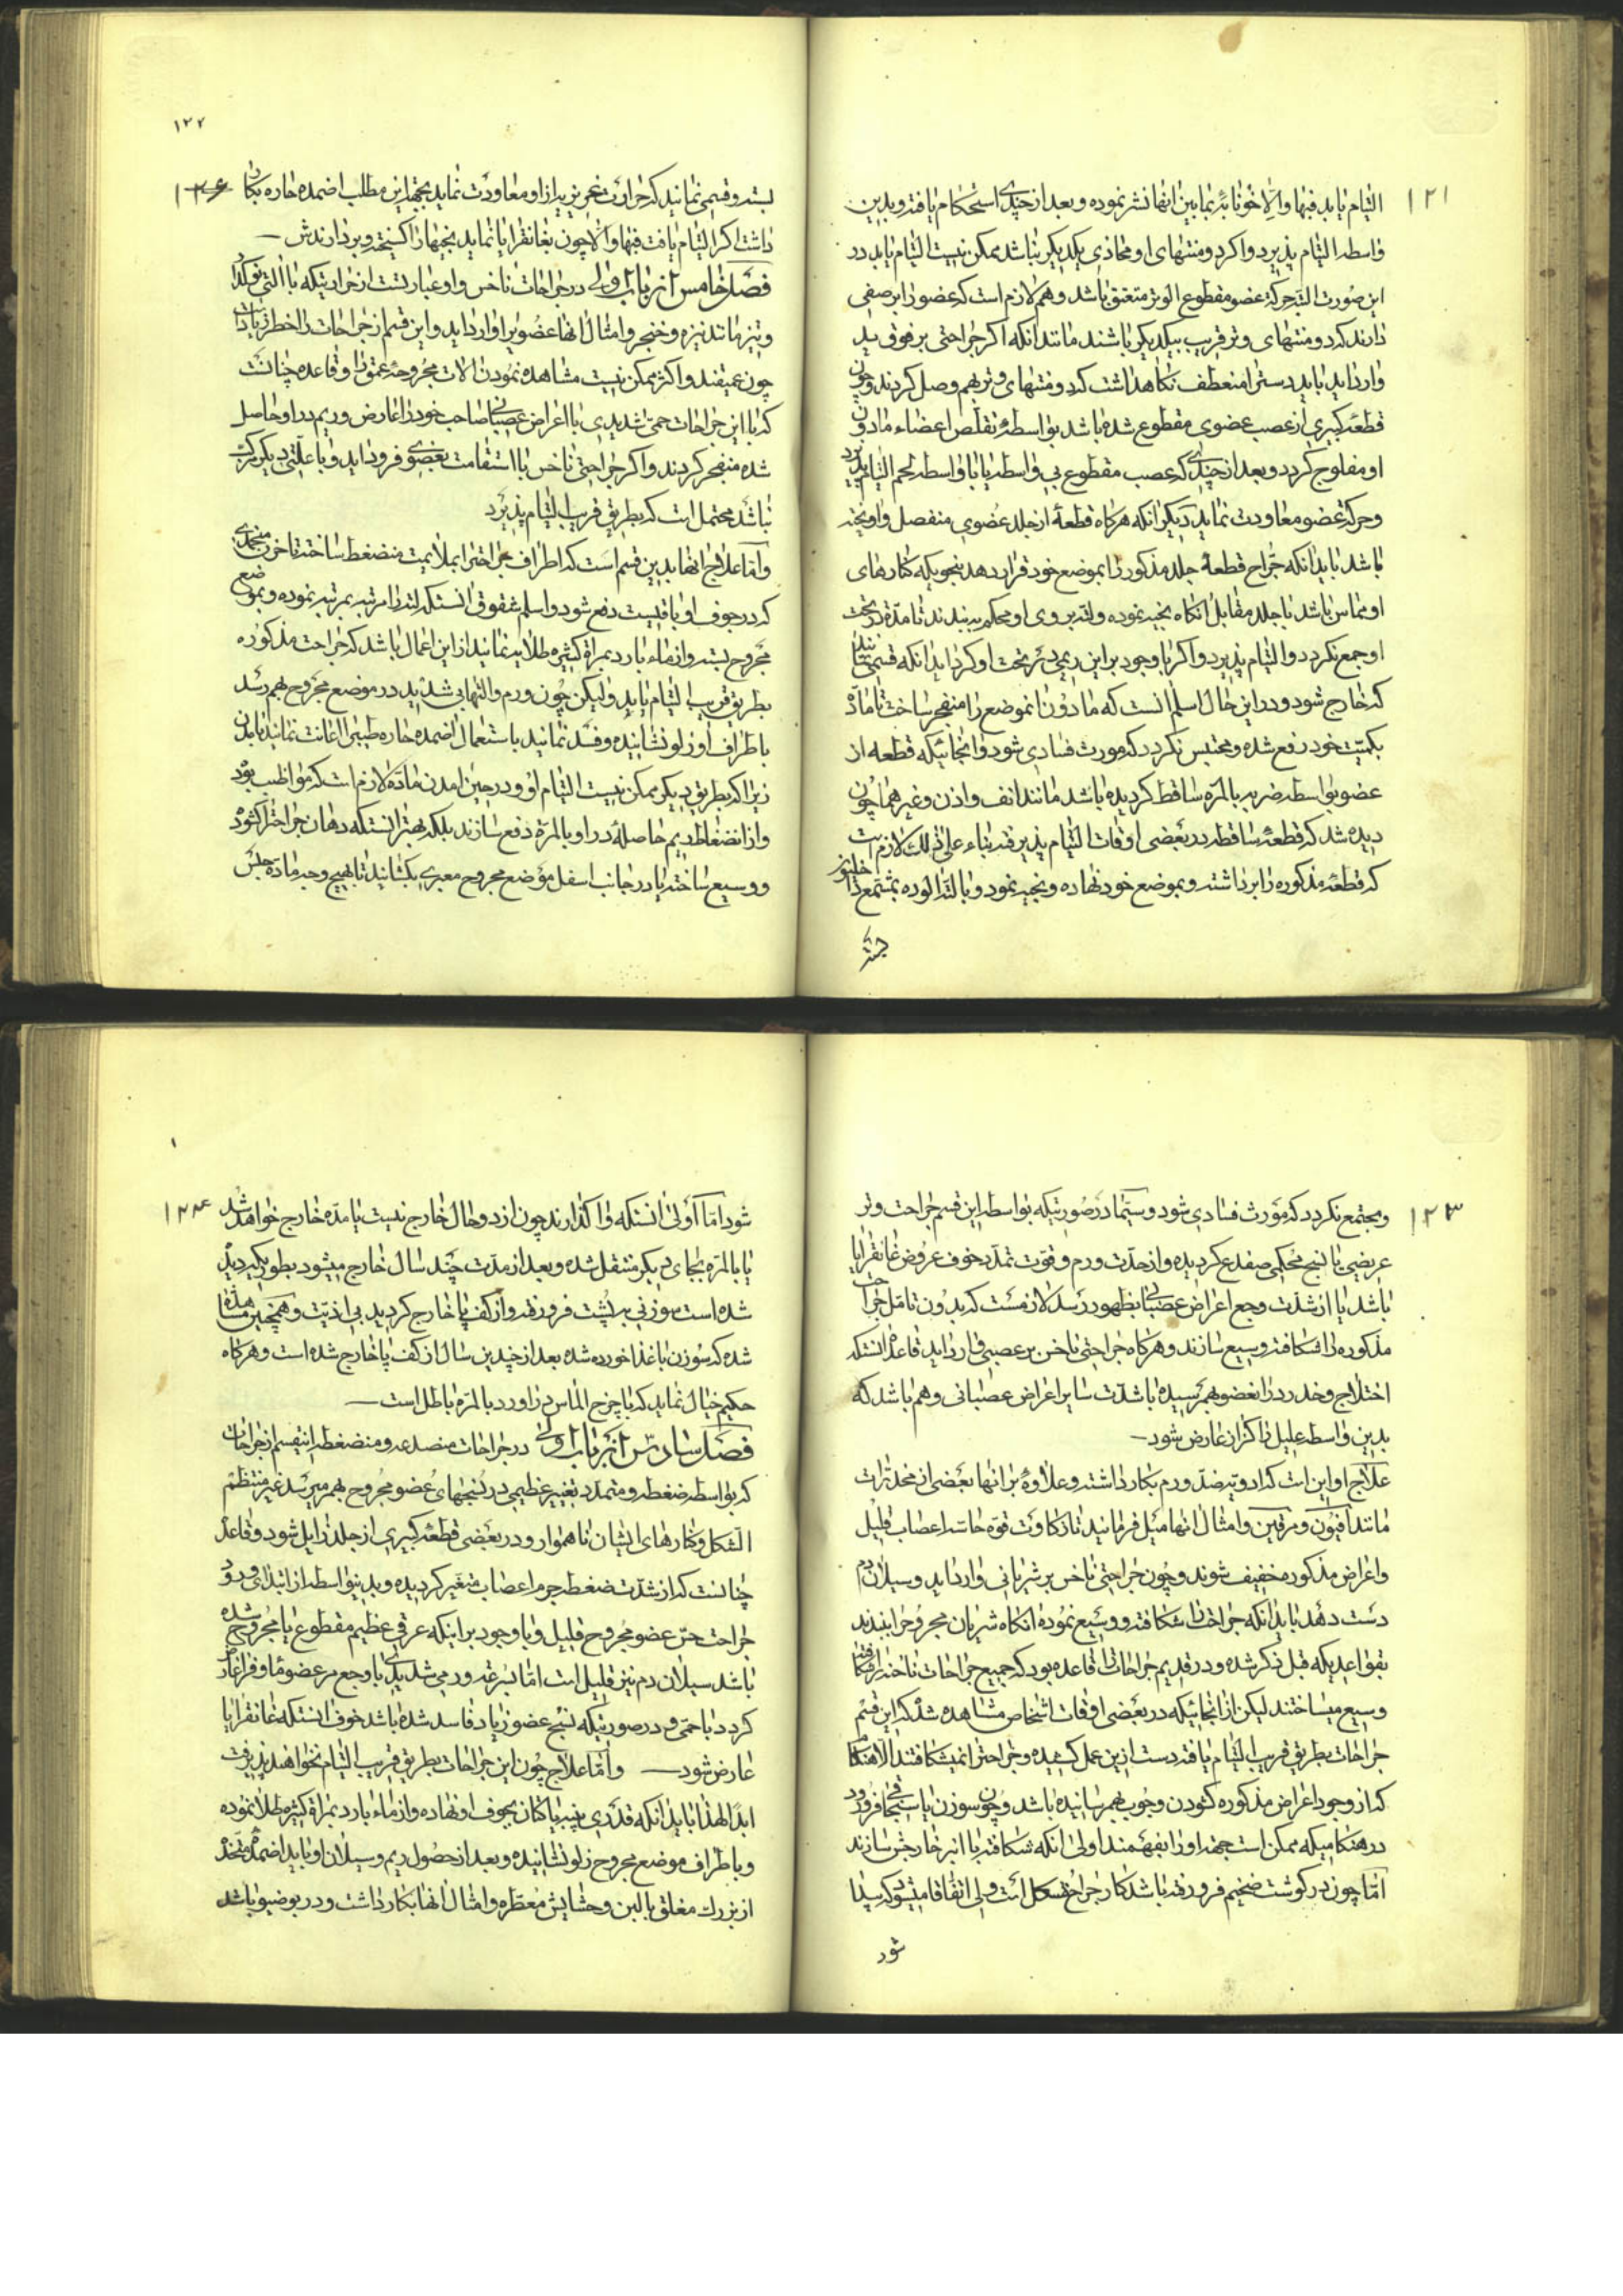 ۱۲۱
التیام یابد فبها والا خونابهٔ مابین انها نشر نموده و بعد از چندی استحکام یافته و بدین
واسطه التیام پذیرد واکر دو منتهای او محاذی یکدیکر نباشد ممکن نیست التیام یابد در
این صورت البته حرکة عضو مقطوع الوتر متعذر باشد وهم لازم است که عضو را بر صفی
دارند که دو منتهای وتر قریب بیکدیکر باشند مانند انکه اکر جراحتی بر فوق ید
وارد اید باید دست را منعطف نکاهداشت که دو منتهای وتر بهم وصل کردند و چون
قطعهٔ کبیری از عصب عضوی مقطوع شده باشد بواسطهٔ تقلص اعضاء مادون
او مفلوج کردد و بعد از چندی که عصب مقطوع بی واسطه یا با واسطه لحم التیام پذیرد
و حرکة عضو معاودت نماید دیکر انکه هرکاه قطعهٔ از جلد عضوی منفصل واویخته
باشد باید انکه جراح قطعهٔ جلد مذکور را بموضع خود قرار دهد بنحویکه کنارهای
او مماس باشد با جلد مقابل انکاه بخیه نموده ولته بر روی او محکم به بندند تا مدّه در تحت
او جمع نکردد والتیام پذیرد واکر با وجود بر این ریمی در تحت او کرد اید انکه قسمی نمایند
که خارج شود و در این حال اسلم انست که مادون انموضع را منفجر ساخت تا مادّه
بکمیّت خود رفع شده و محتبس نکردد که مورث فسادی شود و از انجائیکه قطعه از
عضو بواسطه ضربه بالمرّه ساقط کردیده باشد مانند انف واذن وغیرهما چون
دیده شد که قطعهٔ ساقطه در بعضی اوقات التیام پذیرفته بناء علی ذلک لازم است
که قطعهٔ مذکوره را برداشته و بموضع خود نهاده و بخیه نمود و با لته الوده بمشمع
۱۲۲
بسته و قسمی نمایند که حرارت غریزیه از او معاودت نماید بجهة این مطلب اضمده حاره بکار
داشت اکر التیام یافت فبها والا چون بغانقرایا نماید بخیها را کسیخته و بردارندش
فصل خامس از باب اولی در جراحات ناخس واو عبارتست از جراحتیکه با التی نوکدار
و تیز مانند نیزه و خنجر و امثال انها عضویرا وارد اید و این قسم از جراحات را خطر زیاد است
چون عمیقند و اکثر ممکن نیست مشاهده نمودن الات مجروحهٔ عمق را و قاعده چنانست
که با این جراحات حمی شدیدی با اعراض عصبانی صاحب خود را عارض و ریم در او حاصل
شده منفجر کردند واکر جراحتی ناخس با استقامت بعضوی فرود اید و با علتی دیکر مرکب
نباشد محتمل است که بطریق قریب التیام پذیرد
واما علاج انها بدین قسم است که اطراف جراحترا بملایمت منضغط ساخته تا خون منجمدی
که در جوف او باقیست دفع شود و اسلم شقوق انستکه لته را مرتبه بمرتبه نموده و بموضع
مجروح بسته و از ماء بارد بمراة کثیره طلایه نمایند از این اعمال باشد که جراحت مذکوره
بطریق قریب التیام یابد ولیکن چون ورم والتهابی شدید در موضع مجروح بهم رسد
باطراف او زلو نشانیده و فسد نمایند با ستعمال اضمده حاره طبیبی اعانت نمایند تا بدن
زیرا که بطریق دیکر ممکن نیست التیام او و در حین امدن مادّه لازم است که مواظب بود
و از انضغاط ریم حاصلهٔ در او بالمرة دفع سازند بلکه بهتر انستکه دهان جراحترا کشوده
و وسیع ساخته یا در جانب اسفل موضع مجروح معبری بکشانید تا بهیچ وجه مادّه حبس
۱۲۳
و مجتمع نکردد که مورث فسادی شود و سیّما در صورتیکه بواسطه این قسم جراحت وتر
عریضی یا نسج محکمی صفدع کردیده و از حدّت ورم و قوت تمدّد خوف عروض غانقرایا
باشد یا از شدّت وجع اعراض عصبانی بظهور رسد لازمست که بدون تامّل جراحت
مذکوره را شکافته وسیع سازند و هرکاه جراحتی ناخس بر عصبی وارد اید قاعده انستکه
اختلاج و خدر در انعضو بهم رسیده با شدّت سایر اعراض عصبانی وهم باشد که
بدین واسطه علیل را کزاز عارض شود
علاج او این است که ادویه ضدّ ورم بکار داشته و علاوهٔ بر انها بعضی از مخدّرات
مانند افیون و مرفین و امثال انها میل فرمایند تا زکاوت قوّه حاسّه اعصاب قلیل
و اعراض مذکوره خفیف شوند و چون جراحتی ناخس بر شریانی وارد اید و سیلان دم
دست دهد باید انکه جراحترا شکافته و وسیع نموده انکاه شریان مجروح را ببندند
بقواعدیکه قبل ذکر شده و در قدیم جراحان را قاعده بود که جمیع جراحات ناخسه را شکافته
وسیع میساختند لیکن از انجائیکه در بعضی اوقات اشخاص مشاهده شد که این قسم
جراحات بطریق قریب التیام یافته دست از این عمل کشیده و جراحترا نمیشکافتند الا هنکام
که از وجود اعراض مذکوره کشودن وجوب بهم رسانیده باشد و چون سوزن یا سیخی فرو رود
در هنکامیکه ممکن است جهة او را بفهمند اولی انکه شکافته با انبر خارجش سازند
امّا چون در کوشت ضخیم فرو رفته باشد کار جراح مشکل است ولی اتفاقا میشود که پیدا
شود
۱۲۴
شود امّا اولی انستکه وا کذارند چون از دو حال خارج نیست یا مدّه خارج خواهد شد
یا بالمرّه بجای دیکر منتقل شده و بعد از مدّت چند سال خارج میشود بطوریکه دیده
شده است سوزنی به پشت فرو رفته و از کف پا خارج کردید بی اذیّت و همچنین مشاهده
شده که سوزن با غذا خورده شده بعد از چندین سال از کف پا خارج شده است و هرکاه
حکیم خیال نماید که با چرخ الماس در اورد بالمرّه باطل است
فصل سادس از باب اولی در جراحات منصدعه و منضغطه اینقسم از جراحات
که بواسطه ضغطه و متمدّد بتغییر عظیمی در نسجهای عضو مجروح بهم میرسد غیر منتظم
الشکل و کنارهای ایشان ناهموار و در بعضی قطعهٔ کبیری از جلد زایل شود و قاعده
چنانست که از شدّت ضغطه جرم اعصاب متغیر کردیده و بدینواسطه از ابتدای ورود
جراحت حسّ عضو مجروح قلیل و با وجود بر اینکه عرقی عظیم مقطوع یا مجروح شده
باشد سیلان دم نیز قلیل است امّا بسرعة ورمی شدید با وجع مر عضو ماوف را عارض
کردد با حمّی و در صورتیکه نسج عضو زیاد فاسد شده باشد خوف انستکه غانقرایا
عارض شود واما علاج چون این جراحات بطریق قریب التیام نخواهند پذیرفت
ابدا لهذا باید انکه قدری پنبه یا کتان بجوف او نهاده و از ماء بارد بمراة کثیره طلا نموده
و باطراف موضع مجروح زلو نشانیده و بعد از حصول ریم و سیلان او باید اضمدهٔ متخذ
از بزرک مغلق بالبن و حشایش معطره و امثال انها بکار داشت و در بوضو باشد